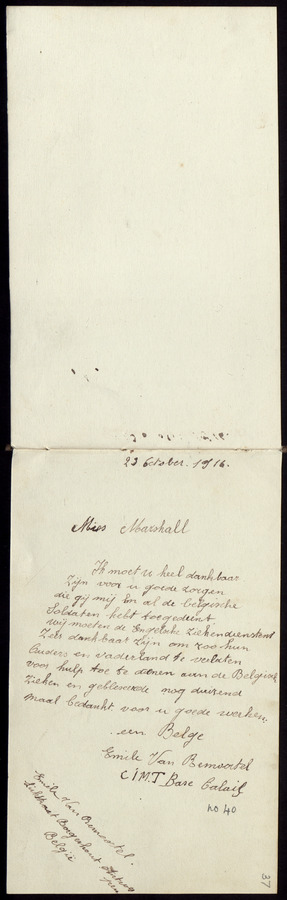 23 October. 1916.
Mies Marshall
Ik moet u heel dankbaar
zijn voor u goede zorgen
die gij mij en al de belgische
Soldaten hebt toegedient
wij moeten de Engelske ziekendienst
Zeer dankbaar zijn om zoo hun
Ouders en vaderland te verlaten
voor hulp toe te dienen aan de Belgische
Zieken en gebleseerde nog duizend
maal bedankt voor u goede werken
een Belge
Emile Van Bemoortel
C.I.M.T Bare Calais
no 40
Emile Van Bemoortel.
Borgerhout
Belgie
37